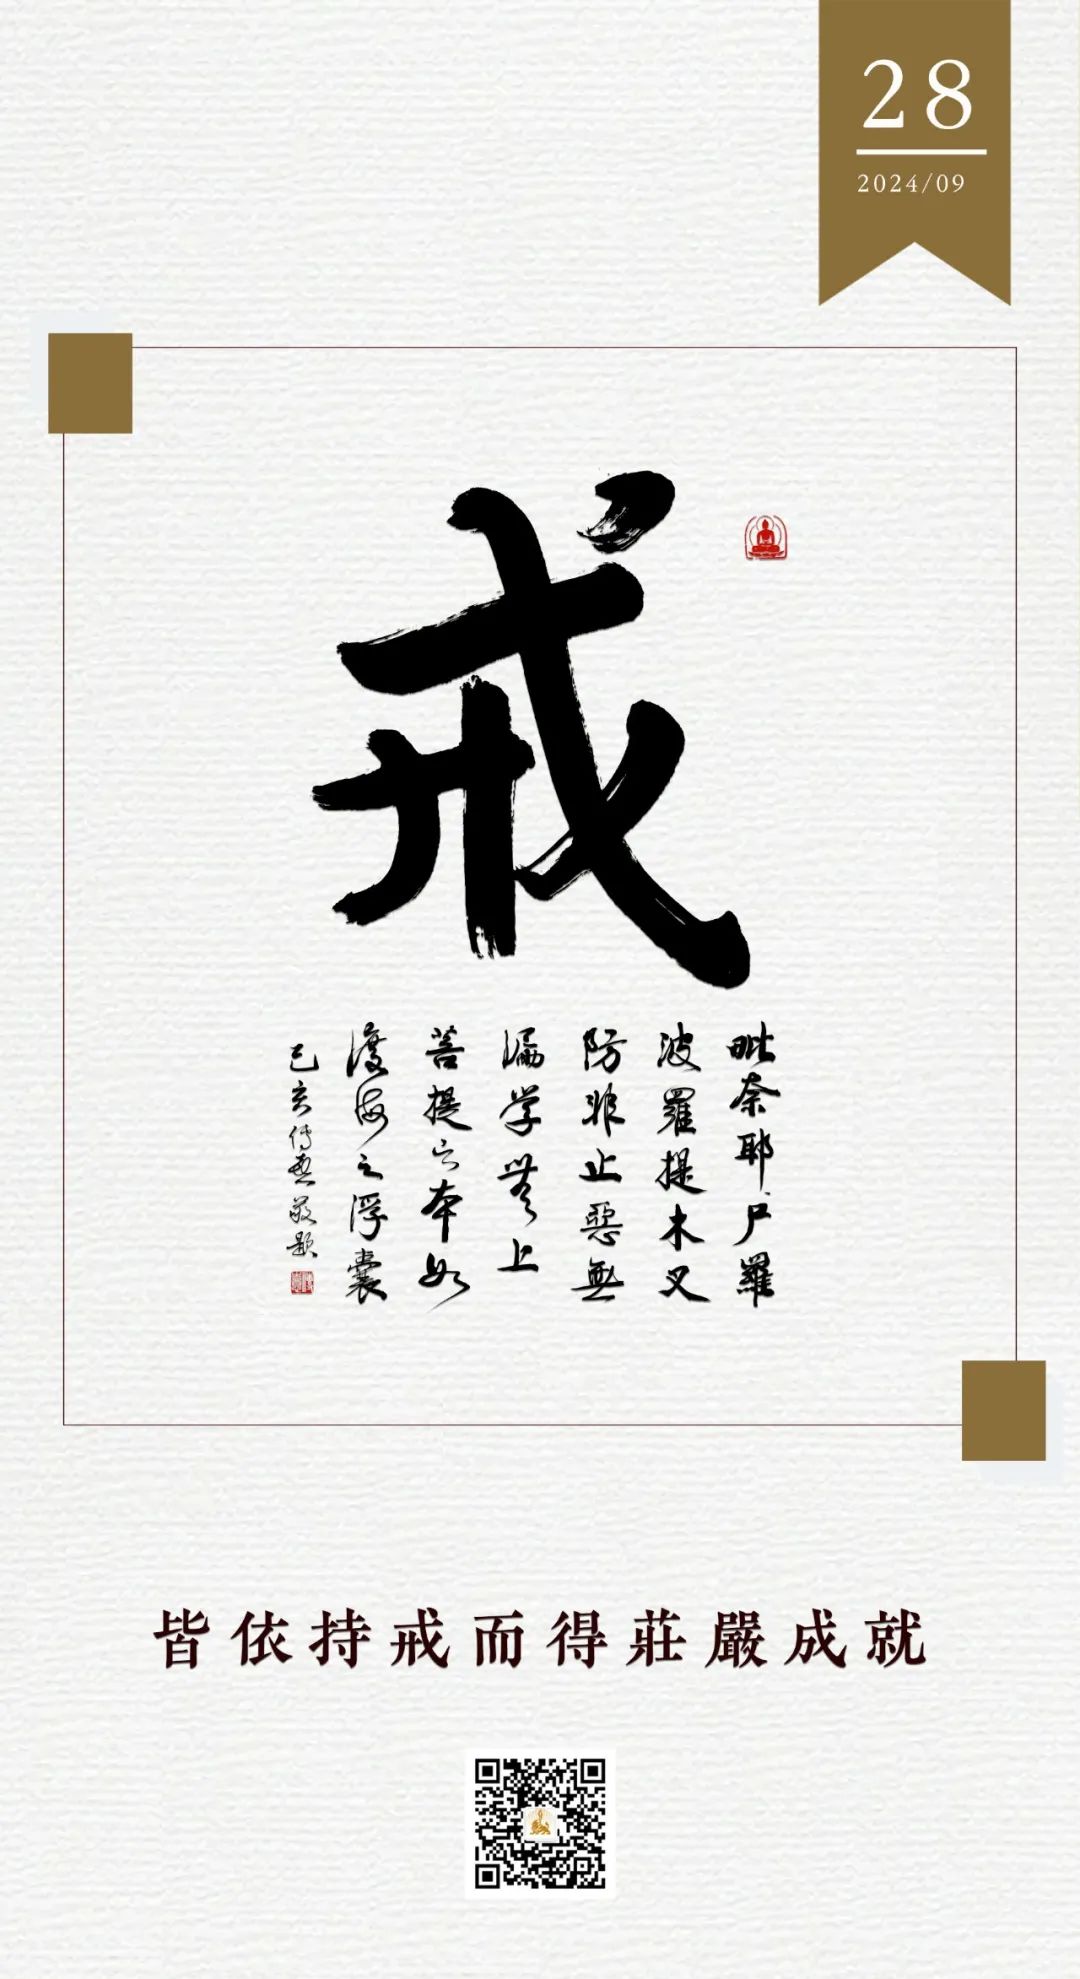 28
2024/09
戒
毗奈耶尸羅
波羅提木叉
防非止惡無
漏学無上
菩提之本如
渡海之浮囊
己亥傳無敬題
皆依持戒而得莊嚴成就